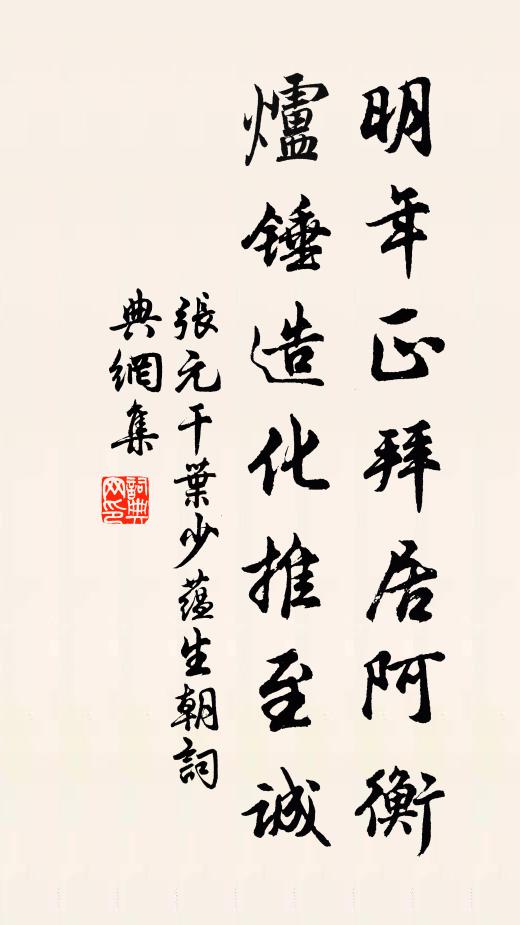 明年正拜居阿衡
爐錘造化推至誠
張元干葉少蘊生朝詞
典網集
詞典
网印